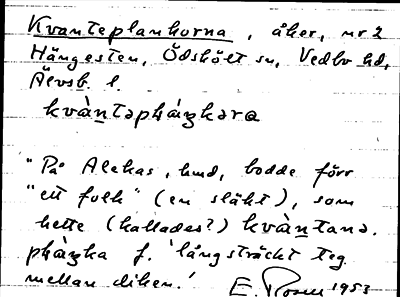 Kvanteplankorna, åker, nr 2
Hängesten, Ödskölt sn, Vedbo hd,
Älvsb. l.
kvàntəpḷáŋkəra
"På Alekas, hmd, bodde förr
"ett folk" (en släkt), som
hette (kallades?) kvàntana.
pláŋka f. 'långsträckt teg
mellan diken.'
E. Rosell 1953